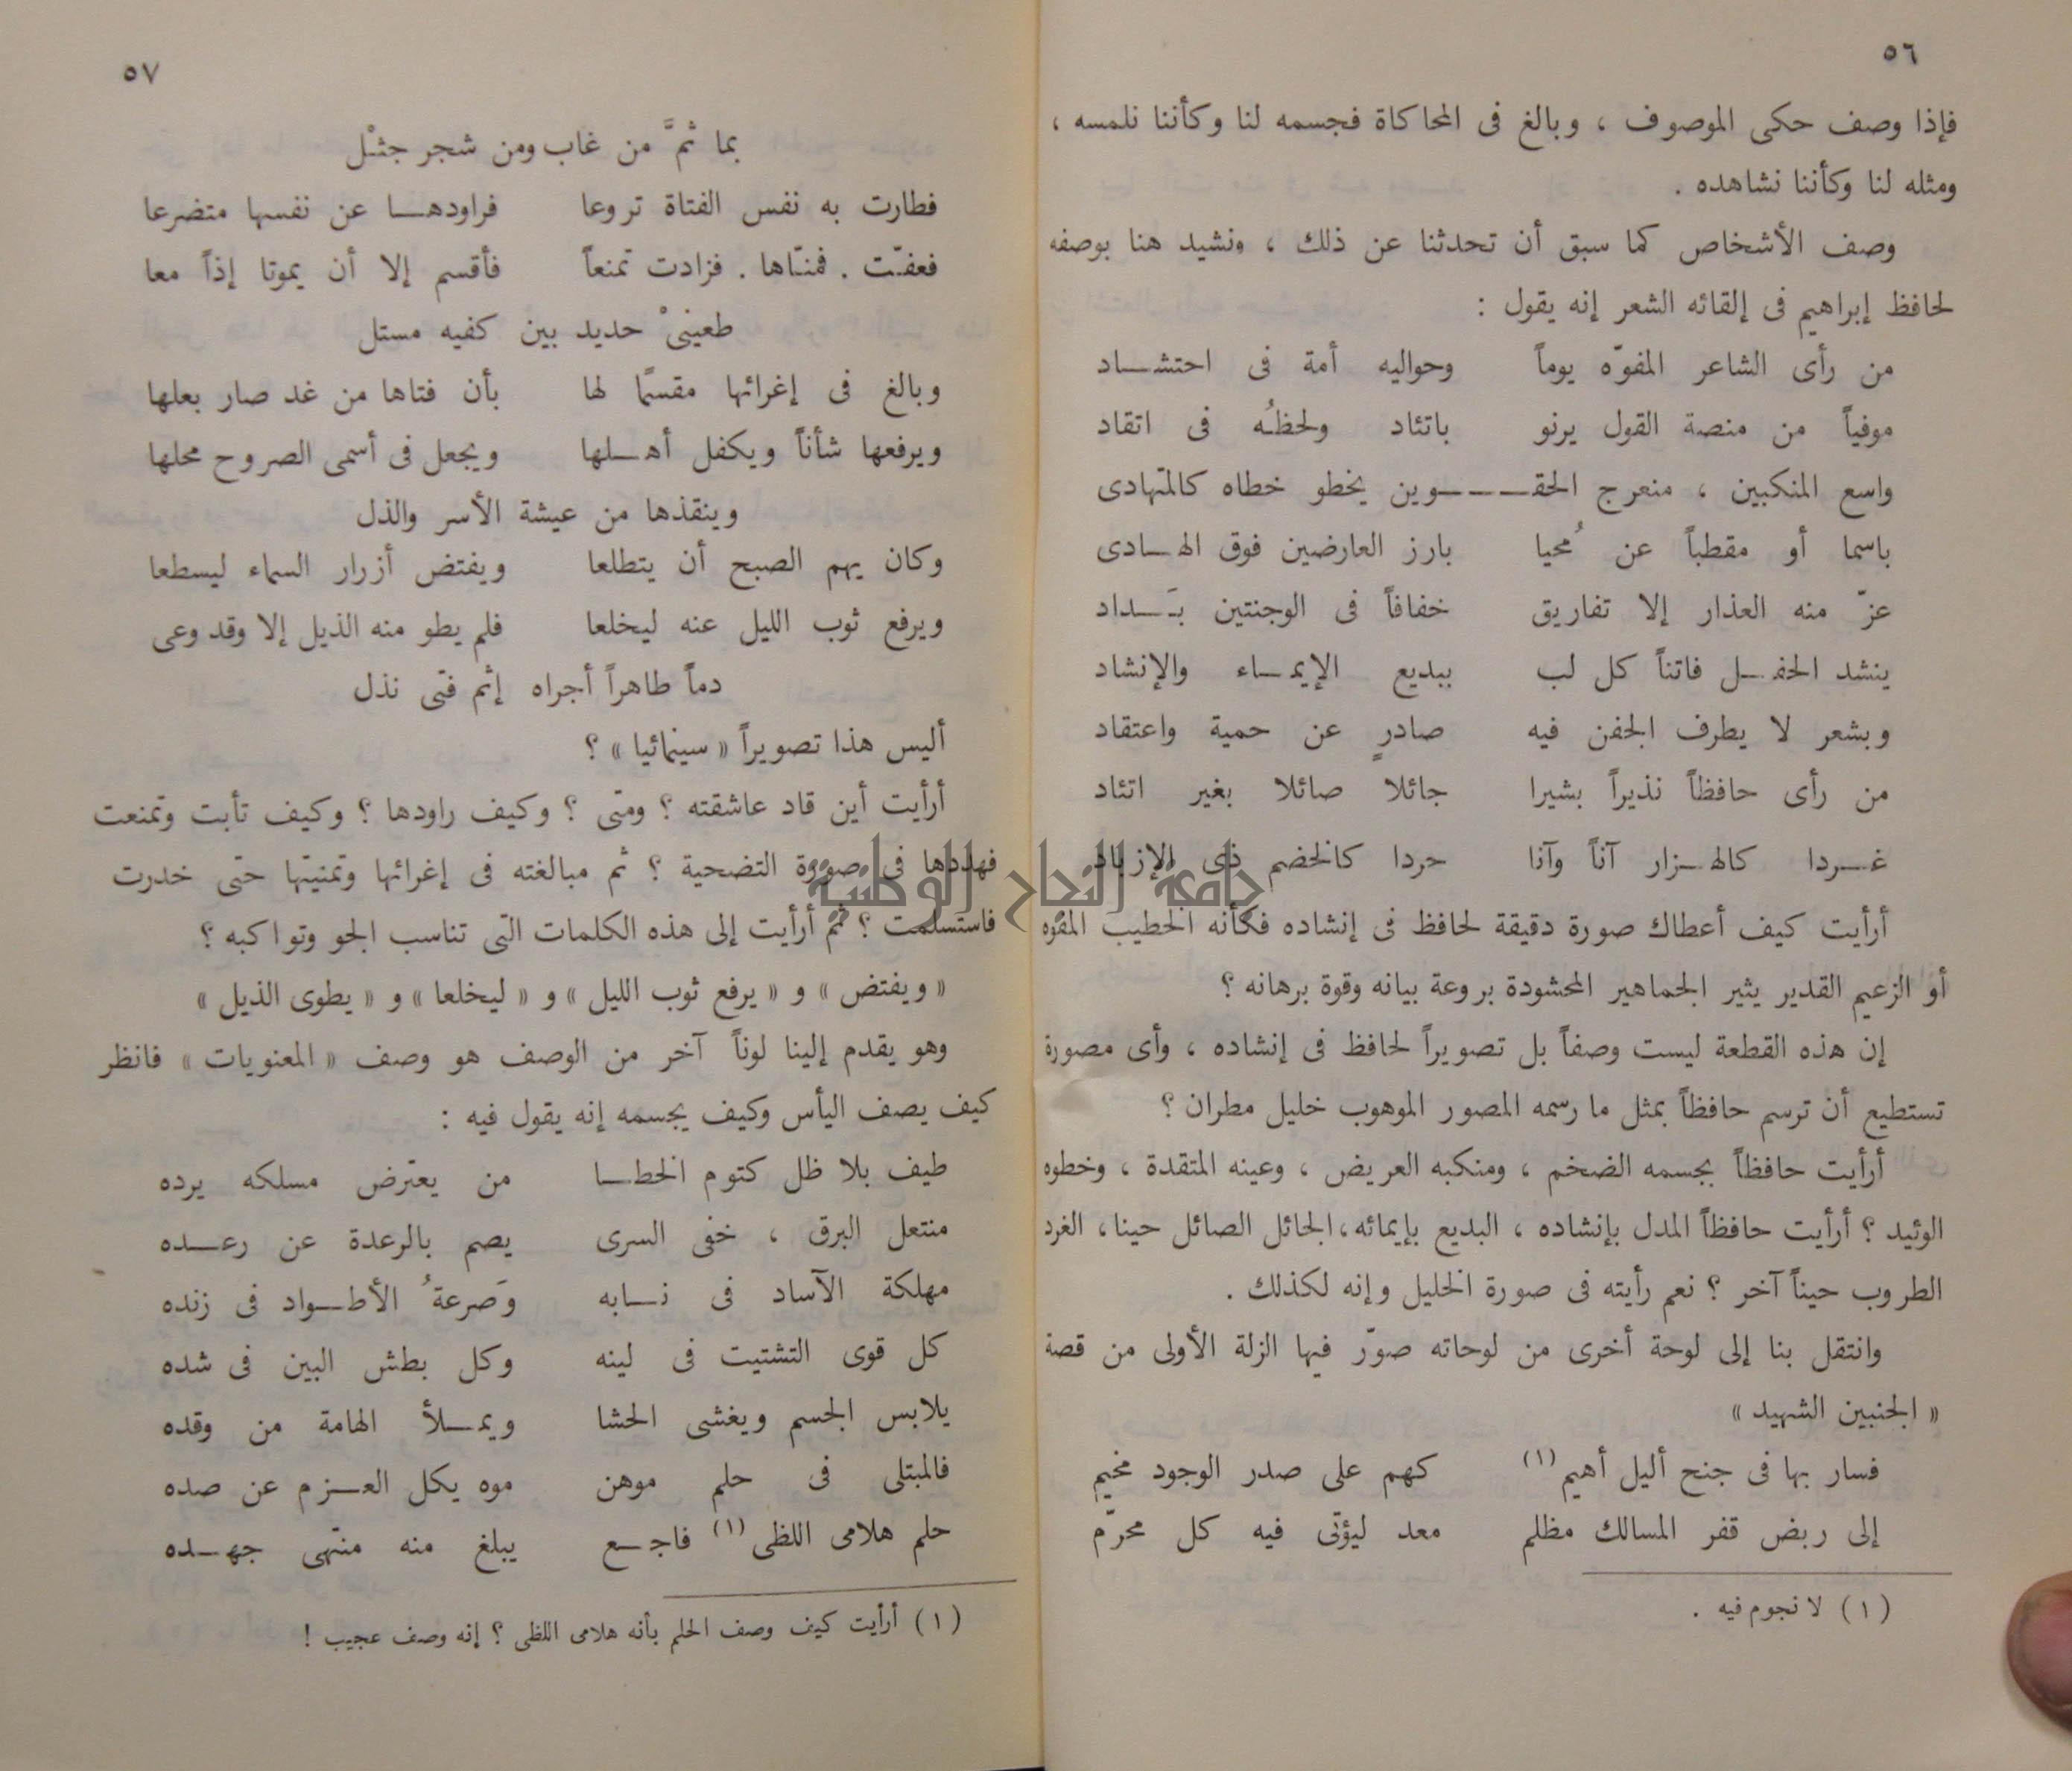 ٥٦
فإذا وصف حكى الموصوف ، وبالغ فى المحاكاة فجسمه لنا وكأننا نلمسه ،
ومثله لنا وكأننا نشاهده .
وصف الأشخاص كما سبق أن تحدثنا عن ذلك ، ونشيد هنا بوصفه
لحافظ إبراهيم فى إلقائه الشعر إنه يقول :
من رأى الشاعر المفوّه يوماً وحواليه أمة فى احتشاد
موفياً من منصة القول يرنو باتئاد ولحظُه فى اتقاد
واسع المنكبين ، منعرج الحقوين يخطو خطاه كالمتهادى
باسما أو مقطباً عن مُحيا بارز العارضين فوق الهادى
عزّ منه العذار إلا تفاريق خفافاً فى الوجنتين بَداد
ينشد الحفل فاتناً كل لب ببديع الإيماء والإنشاد
وبشعر لا يطرف الجفن فيه صادرٍ عن حمية واعتقاد
من رأى حافظاً نذيراً بشيرا جائلا صائلا بغير اتئاد
غردا كالهزار آناً وآنا حردا كالخضم ذى الإزباد
أرأيت كيف أعطاك صورة دقيقة لحافظ فى إنشاده فكأنه الخطيب المفوه
أو الزعيم القدير يثير الجماهير المحشودة بروعة بيانه وقوة برهانه ؟
إن هذه القطعة ليست وصفاً بل تصويراً لحافظ فى إنشاده ، وأى مصورة
تستطيع أن ترسم حافظاً بمثل ما رسمه المصور الموهوب خليل مطران ؟
أرأيت حافظاً بجسمه الضخم ، ومنكبه العريض ، وعينه المتقدة ، وخطوه
الوئيد ؟ أرأيت حافظاً المدل بإنشاده ، البديع بإيمائه ، الجائل الصائل حينا ، الغرد
الطروب حيناً آخر ؟ نعم رأيته فى صورة الخليل وإنه لكذلك .
وانتقل بنا إلى لوحة أخرى من لوحاته صوّر فيها الزلة الأولى من قصة
« الجنبين الشهيد »
فسار بها فى جنح أليل أهيم (١) كهم على صدر الوجود مخيم
إلى ربض قفر المسالك مظلم معد ليؤتى فيه كل محرّم
(١) لا نجوم فيه .
٥٧
بما ثمَّ من غاب ومن شجر جثْل
فطارت به نفس الفتاة تروعا فراودها عن نفسها متضرعا
فعفّت . فمنّاها . فزادت تمنعاً فأقسم إلا أن يموتا إذاً معا
طعينىْ حديد بين كفيه مستل
وبالغ فى إغرائها مقسمًا لها بأن فتاها من غد صار بعلها
ويرفعها شأناً ويكفل أهلها ويجعل فى أسمى الصروح محلها
وينقذها من عيشة الأسر والذل
وكان يهم الصبح أن يتطلعا ويفتض أزرار السماء ليسطعا
ويرفع ثوب الليل عنه ليخلعا فلم يطو منه الذيل إلا وقد وعى
دماً طاهراً أجراه إثم فتى نذل
أليس هذا تصويراً « سينمائيا » ؟
أرأيت أين قاد عاشقته ؟ ومتى ؟ وكيف راودها ؟ وكيف تأبت وتمنعت
فهددها فى صورة التضحية ؟ ثم مبالغته فى إغرائها وتمنيتها حتى خدرت
فاستسلمت ؟ ثم أرأيت إلى هذه الكلمات التى تناسب الجو وتواكبه ؟
« ويفتض » و « يرفع ثوب الليل » و « ليخلعا » و « يطوى الذيل »
وهو يقدم إلينا لوناً آخر من الوصف هو وصف « المعنويات » فانظر
كيف يصف اليأس وكيف يجسمه إنه يقول فيه :
طيف بلا ظل كتوم الخطا من يعترض مسلكه يرده
منتعل البرق ، خفى السرى يصم بالرعدة عن رعده
مهلكة الآساد فى نابه وَصرعةُ الأطواد فى زنده
كل قوى التشتيت فى لينه وكل بطش البين فى شده
يلابس الجسم ويغشى الحشا ويملأ الهامة من وقده
فالمبتلى فى حلم موهن موه يكل العزم عن صده
حلم هلامى اللظى (١) فاجع يبلغ منه منتهى جهده
(١) أرأيت كيف وصف الحلم بأنه هلامى اللظى ؟ إنه وصف عجيب !
جامعة النجاح الوطنية